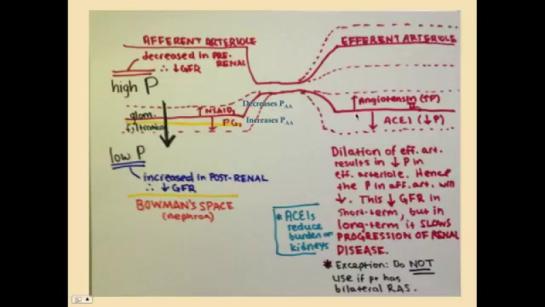 AFFERENT ARTERIOLE
decreased in PRE-
RENAL
∴ ↓GFR
high P
glom.
filtration
↑ NSAIDs
↓ PGs
Decreases PAA
Increases PAA
low P
increased in POST-RENAL
∴ ↓ GFR
BOWMAN'S SPACE
(nephron)
EFFERENT ARTERIOLE
↑ Angiotensin (↑P)
↓ ACEI (↓P)
* ACEIs
reduce
burden on
kidneys
Dilation of eff. art.
results in ↓ P in
eff. arteriole. Hence
the P in aff. art. will
↓. This ↓ GFR in
short-term, but in
long-term it SLOWS
PROGRESSION OF RENAL
DISEASE.
* Exception: Do NOT
use if pt has
bilateral RAS.